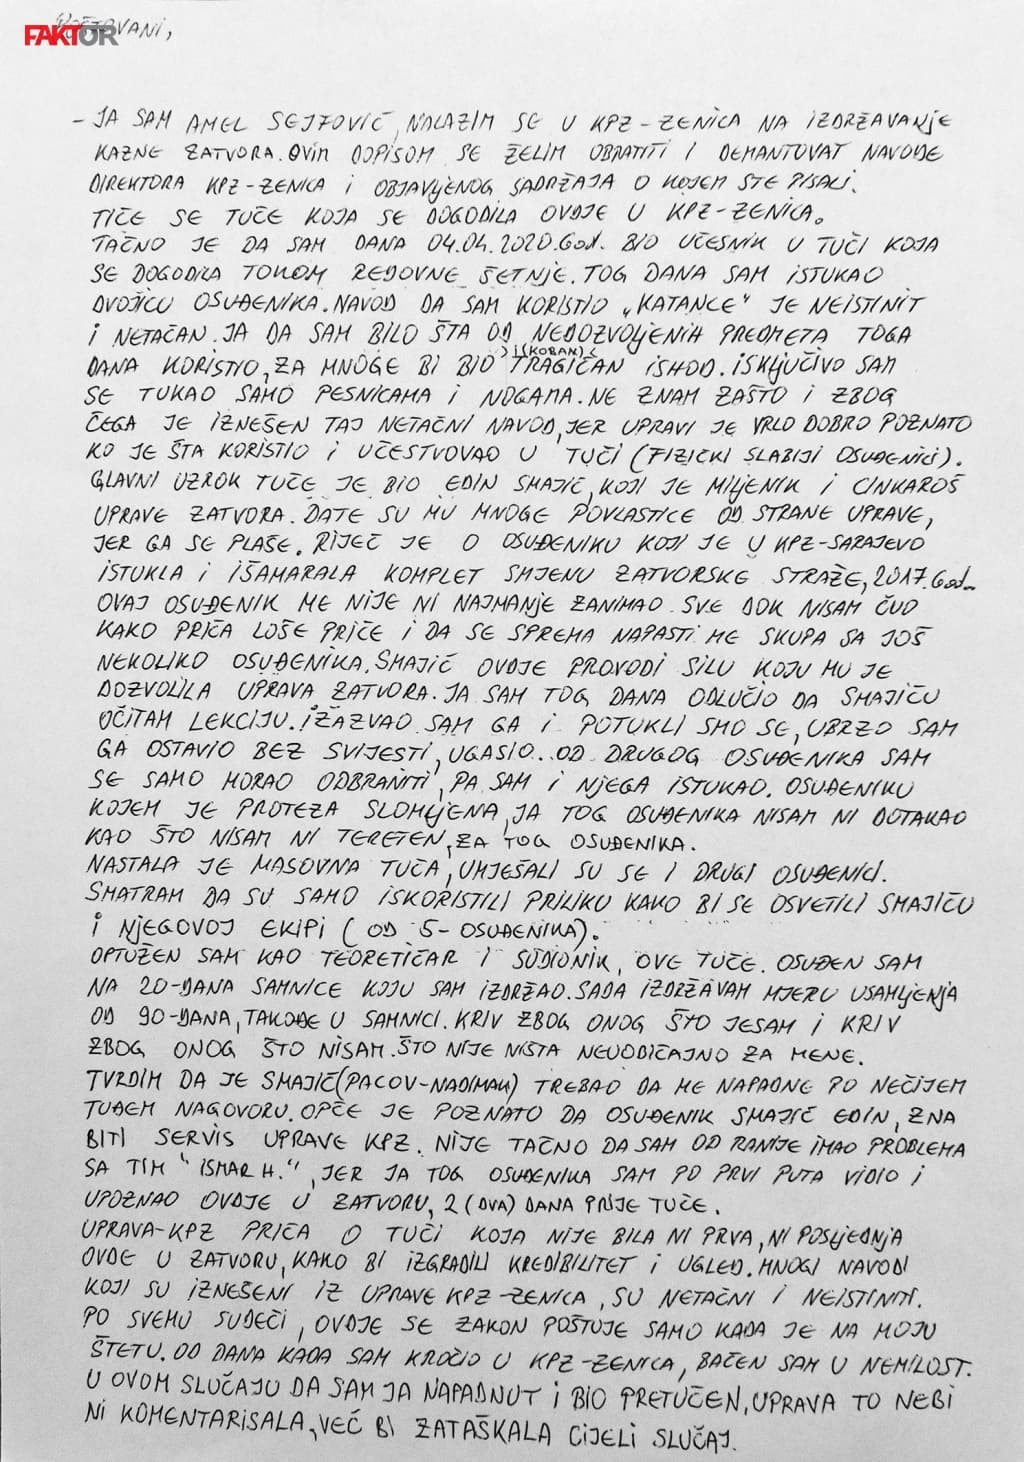 FAKTOR
POŠTOVANI,
- JA SAM AMEL SEJFOVIĆ, NALAZIM SE U KPZ-ZENICA NA IZDRŽAVANJE
KAZNE ZATVORA. OVIM DOPISOM SE ŽELIM OBRATITI I DEMANTOVAT NAVODE
DIREKTORA KPZ-ZENICA I OBJAVLJENOG SADRŽAJA O KOJEM STE PISALI.
TIČE SE TUČE KOJA SE DOGODILA OVDJE U KPZ-ZENICA.
TAČNO JE DA SAM DANA 04.04.2020.God. BIO UČESNIK U TUČI KOJA
SE DOGODILA TOKOM REDOVNE ŠETNJE. TOG DANA SAM ISTUKAO
DVOJICU OSUĐENIKA. NAVOD DA SAM KORISTIO „KATANCE" JE NEISTINIT
I NETAČAN. JA DA SAM BILO ŠTA OD NEDOZVOLJENIH PREDMETA TOGA
DANA KORISTIO, ZA MNOGE BI BIO TRAGIČAN I (KOBAN) ISHOD. ISKLJUČIVO SAM
SE TUKAO SAMO PESNICAMA I NOGAMA. NE ZNAM ZAŠTO I ZBOG
ČEGA JE IZNEŠEN TAJ NETAČNI NAVOD, JER UPRAVI JE VRLO DOBRO POZNATO
KO JE ŠTA KORISTIO I UČESTVOVAO U TUČI (FIZIČKI SLABIJI OSUĐENICI).
GLAVNI UZROK TUČE JE BIO EDIN SMAJIĆ, KOJI JE MILJENIK I CINKAROŠ
UPRAVE ZATVORA. DATE SU MU MNOGE POVLASTICE OD STRANE UPRAVE,
JER GA SE PLAŠE. RIJEČ JE O OSUĐENIKU KOJI JE U KPZ-SARAJEVO
ISTUKLA I IŠAMARALA KOMPLET SMJENU ZATVORSKE STRAŽE, 2017.God.
OVAJ OSUĐENIK ME NIJE NI NAJMANJE ZANIMAO SVE DOK NISAM ČUO
KAKO PRIČA LOŠE PRIČE I DA SE SPREMA NAPASTI ME SKUPA SA JOŠ
NEKOLIKO OSUĐENIKA. SMAJIĆ OVDJE PROVODI SILU KOJU MU JE
DOZVOLILA UPRAVA ZATVORA. JA SAM TOG DANA ODLUČIO DA SMAJIĆU
OČITAM LEKCIJU. IZAZVAO SAM GA I POTUKLI SMO SE, UBRZO SAM
GA OSTAVIO BEZ SVIJESTI, UGASIO.. OD DRUGOG OSUĐENIKA SAM
SE SAMO MORAO ODBRANITI, PA SAM I NJEGA ISTUKAO. OSUĐENIKU
KOJEM JE PROTEZA SLOMLJENA, JA TOG OSUĐENIKA NISAM NI DOTAKAO
KAO ŠTO NISAM NI TERETEN, ZA TOG OSUĐENIKA.
NASTALA JE MASOVNA TUČA, UMJEŠALI SU SE I DRUGI OSUĐENICI.
SMATRAM DA SU SAMO ISKORISTILI PRILIKU KAKO BI SE OSVETILI SMAJIĆU
I NJEGOVOJ EKIPI (OD 5-OSUĐENIKA).
OPTUŽEN SAM KAO TEORETIČAR I SUDIONIK, OVE TUČE. OSUĐEN SAM
NA 20-DANA SAMNICE KOJU SAM IZDRŽAO. SADA IZDRŽAVAM MJERU USAMLJENJA
OD 90-DANA, TAKOĐE U SAMNICI. KRIV ZBOG ONOG ŠTO JESAM I KRIV
ZBOG ONOG ŠTO NISAM. ŠTO NIJE NIŠTA NEUOBIČAJNO ZA MENE.
TVRDIM DA JE SMAJIĆ (PACOV-NADIMAK) TREBAO DA ME NAPADNE PO NEČIJEM
TUĐEM NAGOVORU. OPĆE JE POZNATO DA OSUĐENIK SMAJIĆ EDIN, ZNA
BITI SERVIS UPRAVE KPZ. NIJE TAČNO DA SAM OD RANIJE IMAO PROBLEMA
SA TIM "ISMAR H.", JER JA TOG OSUĐENIKA SAM PO PRVI PUTA VIDIO I
UPOZNAO OVDJE U ZATVORU, 2 (DVA) DANA PRIJE TUČE.
UPRAVA-KPZ PRIČA O TUČI KOJA NIJE BILA NI PRVA, NI POSLJEDNJA
OVDE U ZATVORU, KAKO BI IZGRADILI KREDIBILITET I UGLED. MNOGI NAVODI
KOJI SU IZNEŠENI IZ UPRAVE KPZ-ZENICA, SU NETAČNI I NEISTINITI.
PO SVEMU SUDEĆI, OVDJE SE ZAKON POŠTUJE SAMO KADA JE NA MOJU
ŠTETU. OD DANA KADA SAM KROČIO U KPZ-ZENICA, BAČEN SAM U NEMILOST.
U OVOM SLUČAJU DA SAM JA NAPADNUT I BIO PRETUČEN, UPRAVA TO NEBI
NI KOMENTARISALA, VEĆ BI ZATAŠKALA CIJELI SLUČAJ.